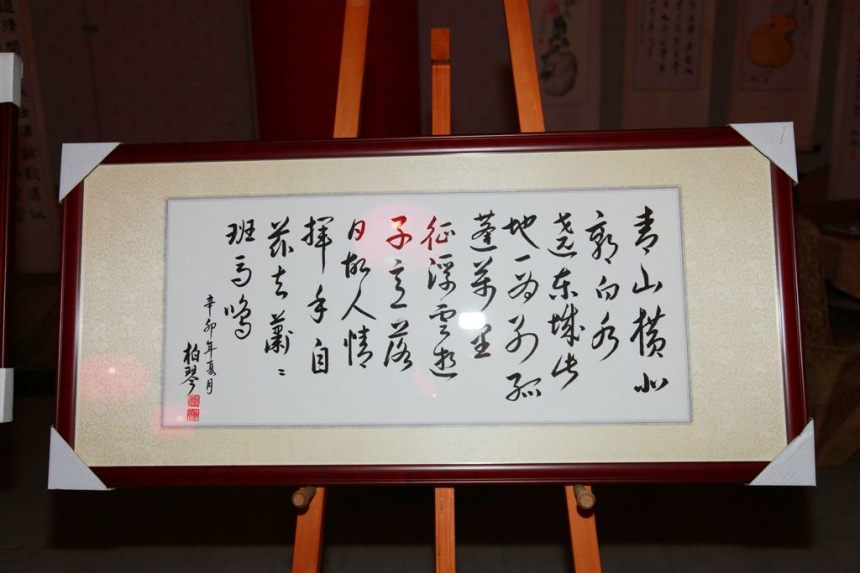 青山橫北
郭白水
遶东城此
地一为别孤
蓬萬里
征浮雲遊
子意落
日故人情
揮手自
茲去蕭々
班马鸣
辛卯年夏月
柏琴